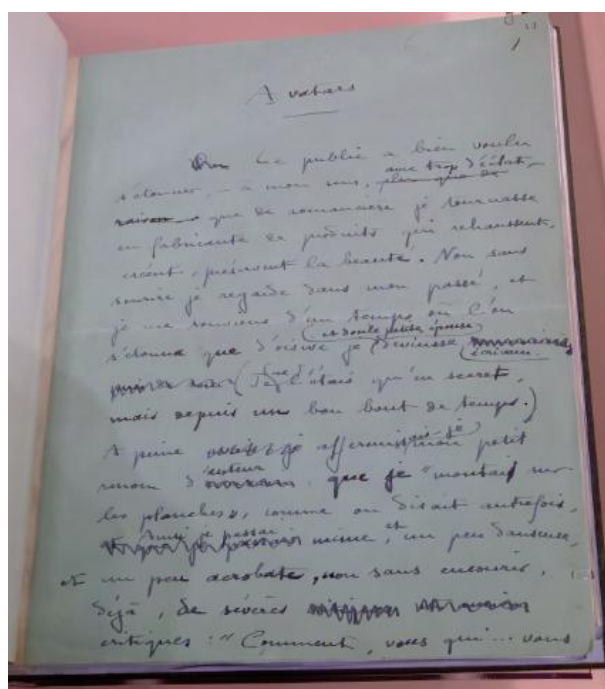 17
1
Avatars
Le public a bien voulu
avec trop d'éclat,
s'étonner, – à mon avis, plus que de
raison – que de romancière je tournasse
en fabricante de produits qui rehaussent,
créent, préservent la beauté. Non sans
sourire je regarde dans mon passé, et
je me souviens d'un temps où l'on
petite épouse)
s'étonna que d'oisive je devinsse
écrivain.
l'étais qu'en secret,
mais depuis un bon bout de temps.)
A peine je affermis -je mon petit
auteur
renom d' que je "montais sur
les planches", comme on disait autrefois,
je passai
mime, et un peu danseuse,
et un peu acrobate, non sans encourir,
déjà, de sévères
critiques : "Comment, vous qui... vous